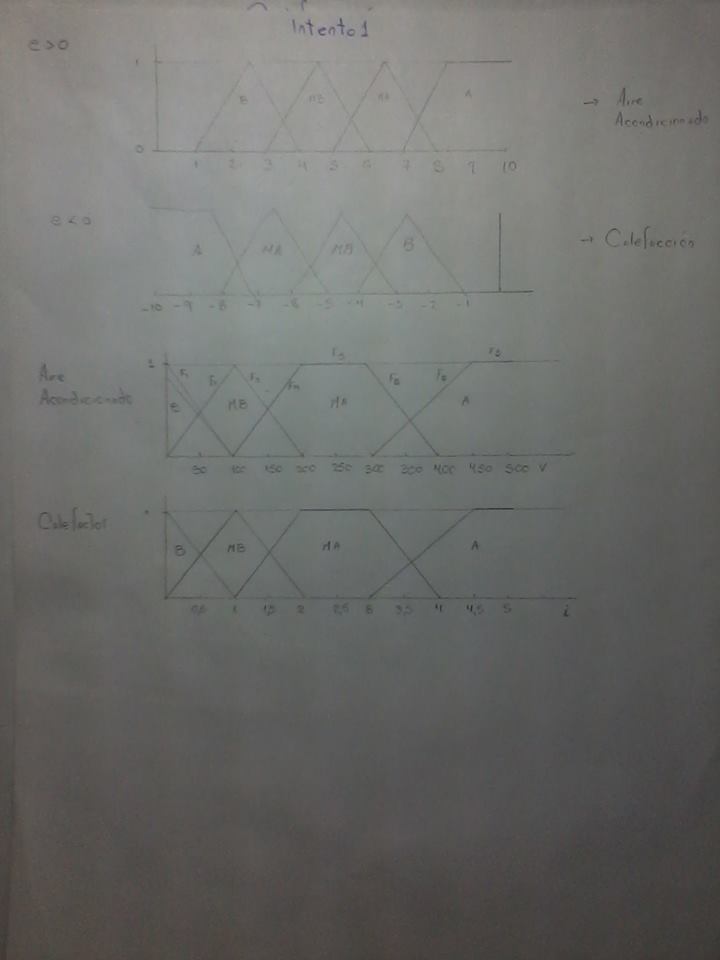 Intento 1
e > 0
1
B MB MA A
0
1 2 3 4 5 6 7 8 9 10
→ Aire
Acondicionado
e < 0
A MA MB B
-10 -9 -8 -7 -6 -5 -4 -3 -2 -1
→ Calefacción
Aire
Acondicionado
1
F1 F2 F3 F4 F5 F6
B MB MA A
50 100 150 200 250 300 400 450 500 V
Calefactor
B MB MA A
0,5 1 1,5 2 2,5 3 3,5 4 4,5 5 i